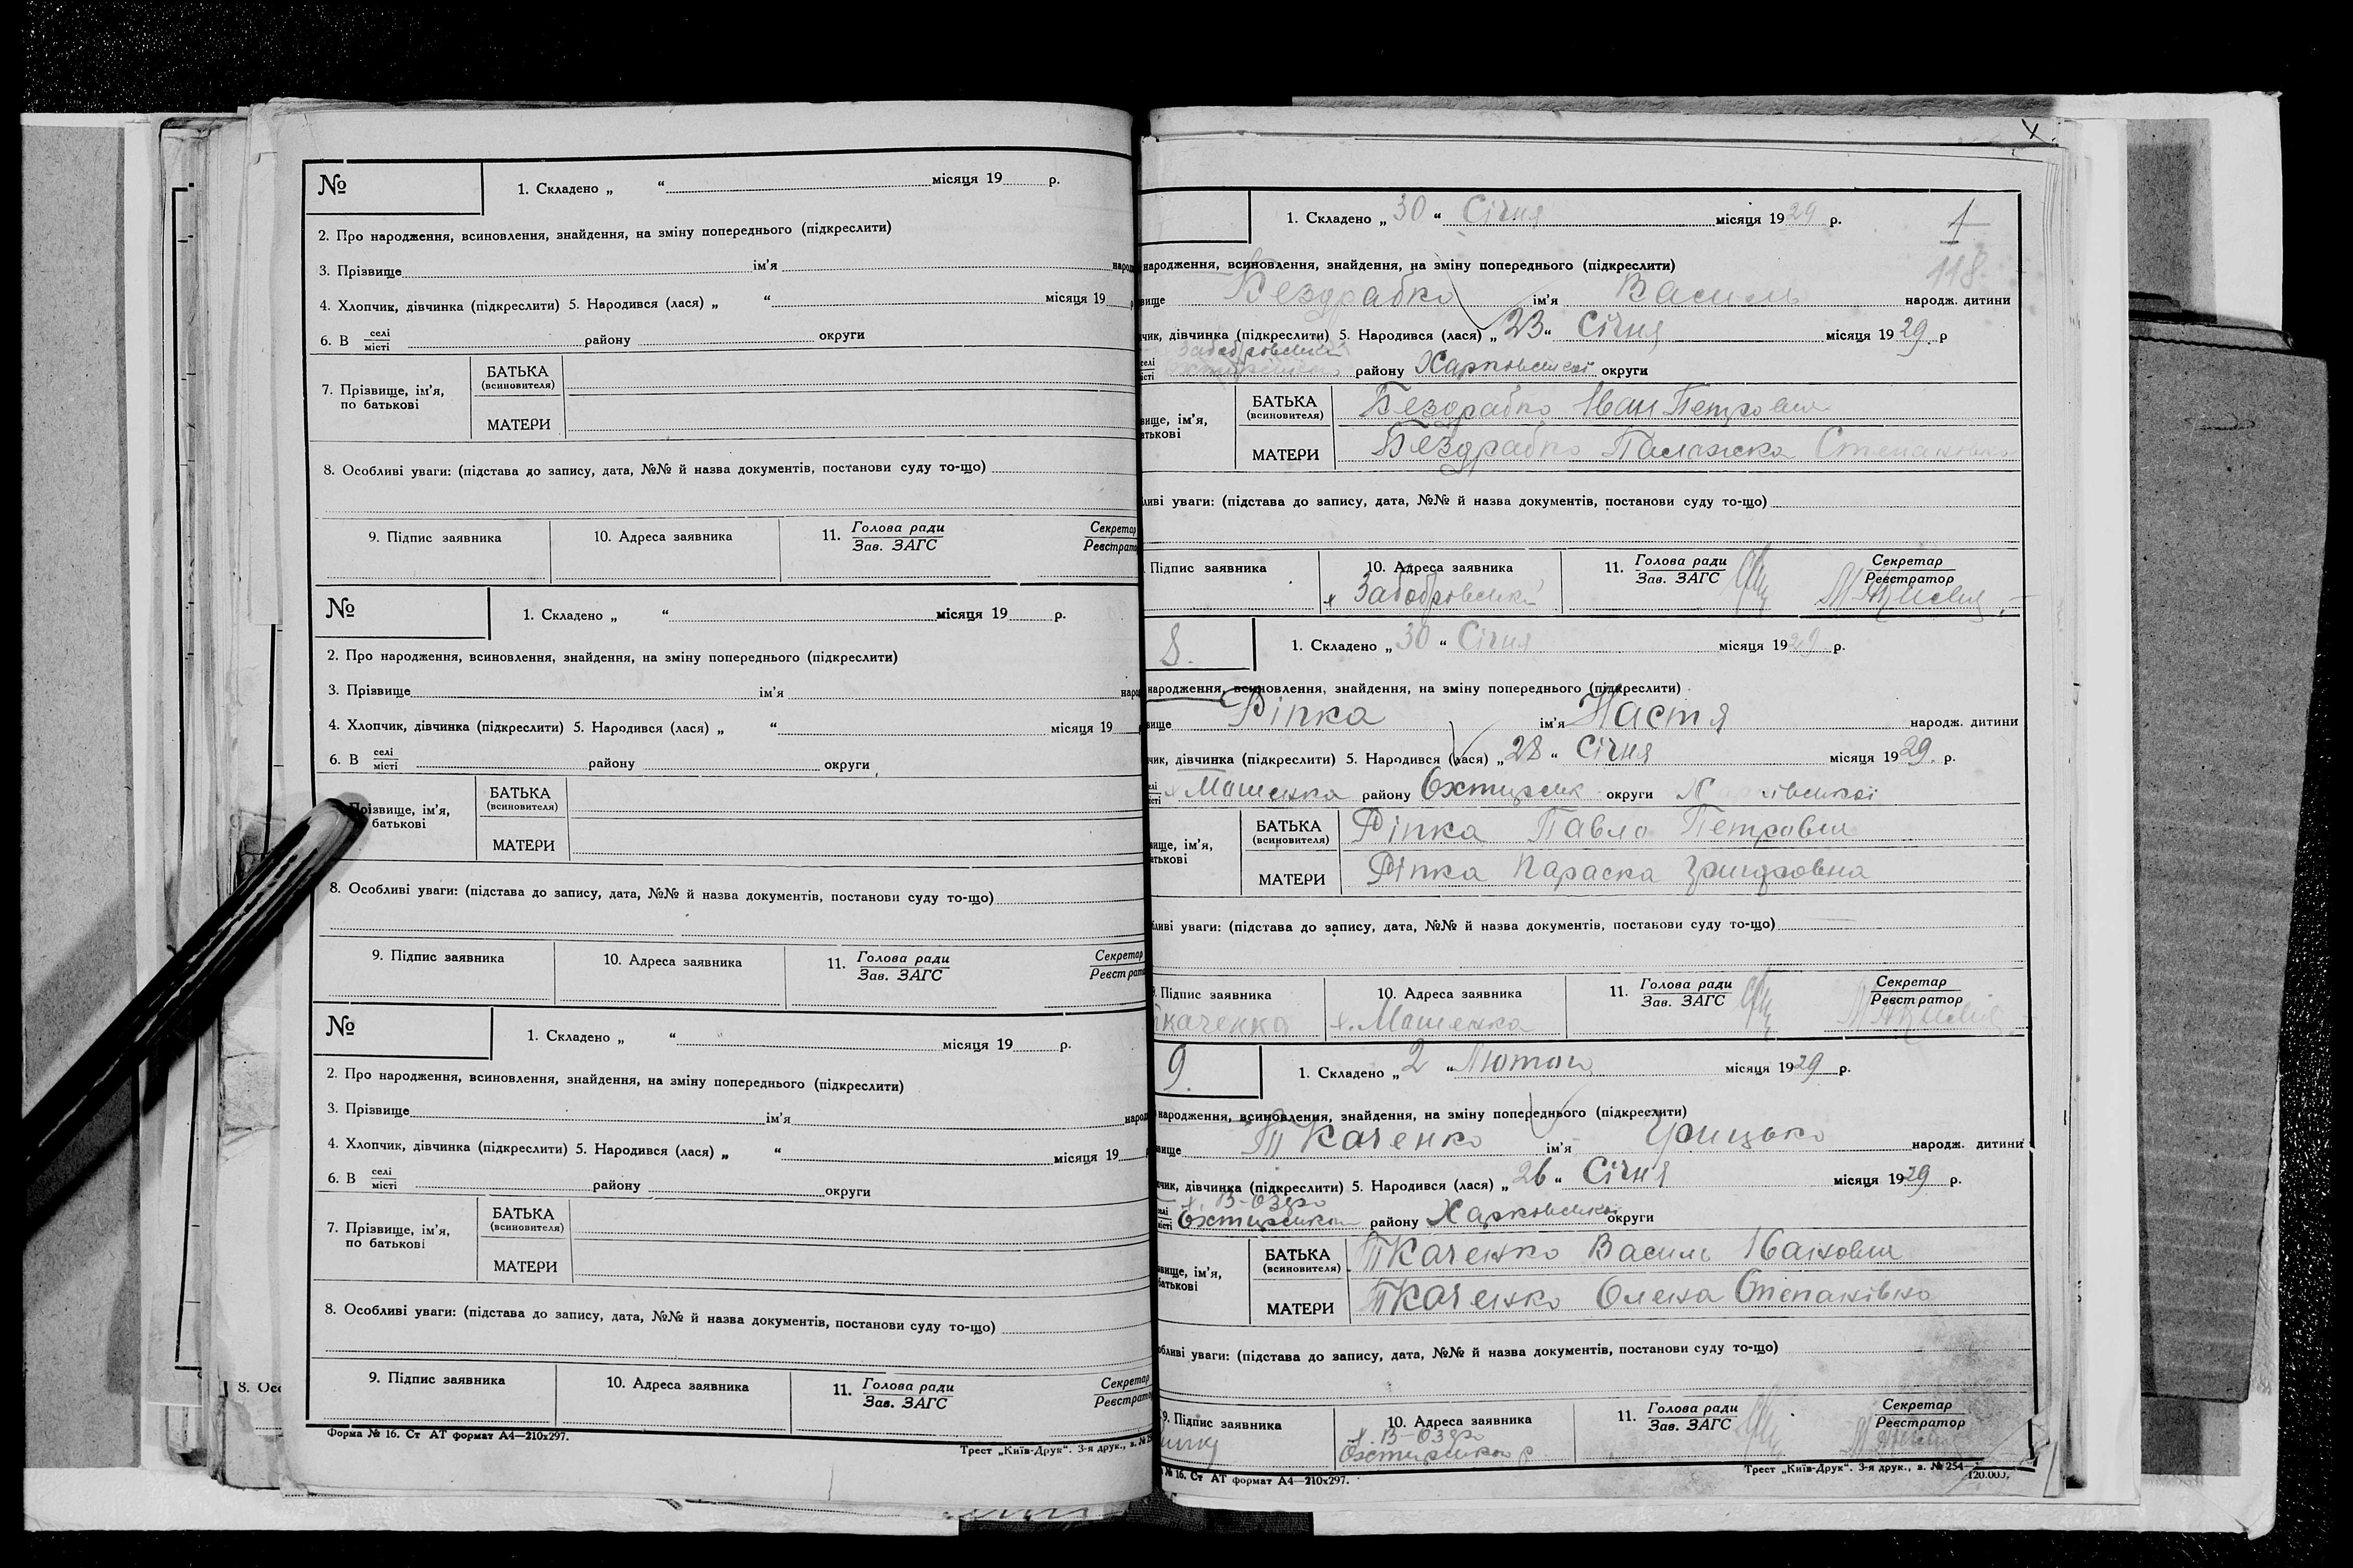 №
1. Складено „ “ місяця 19 р.
2. Про народження, всиновлення, знайдення, на зміну попереднього (підкреслити)
3. Прізвище ім'я народ
4. Хлопчик, дівчинка (підкреслити) 5. Народився (лася) „ “ місяця 19
6. В селі місті району округи
7. Прізвище, ім'я, по батькові
БАТЬКА (всиновителя)
МАТЕРИ
8. Особливі уваги: (підстава до запису, дата, №№ й назва документів, постанови суду то-що)
9. Підпис заявника 10. Адреса заявника 11. Голова ради Зав. ЗАГС Секретар Реєстрато
№
1. Складено „ “ місяця 19 р.
2. Про народження, всиновлення, знайдення, на зміну попереднього (підкреслити)
3. Прізвище ім'я наро
4. Хлопчик, дівчинка (підкреслити) 5. Народився (лася) „ “ місяця 19
6. В селі місті району округи
Прізвище, ім'я, батькові
БАТЬКА (всиновителя)
МАТЕРИ
8. Особливі уваги: (підстава до запису, дата, №№ й назва документів, постанови суду то-що)
9. Підпис заявника 10. Адреса заявника 11. Голова ради Зав. ЗАГС Секретар Реєстрато
№
1. Складено „ “ місяця 19 р.
2. Про народження, всиновлення, знайдення, на зміну попереднього (підкреслити)
3. Прізвище ім'я народ
4. Хлопчик, дівчинка (підкреслити) 5. Народився (лася) „ “ місяця 19
6. В селі місті району округи
7. Прізвище, ім'я, по батькові
БАТЬКА (всиновителя)
МАТЕРИ
8. Особливі уваги: (підстава до запису, дата, №№ й назва документів, постанови суду то-що)
9. Підпис заявника 10. Адреса заявника 11. Голова ради Зав. ЗАГС Секретар Реєстрато
Форма № 16. Ст АТ формат А4—210х297.
Трест „Київ-Друк“. 3-я друк., з. №
8. Осо
1. Складено „ 30 “ Січня місяця 1929 р.
118
народження, всиновлення, знайдення, на зміну попереднього (підкреслити)
вище Бездрабко ім'я Василь народж. дитини
чик, дівчинка (підкреслити) 5. Народився (лася) „ 23 “ Січня місяця 1929 р
Забобровський
селі місті району Харковської округи
вище, ім'я, атькові
БАТЬКА (всиновителя) Бездрабко Іван Петрович
МАТЕРИ Бездрабко Палажка Степановна
ливі уваги: (підстава до запису, дата, №№ й назва документів, постанови суду то-що)
Підпис заявника 10. Адреса заявника 11. Голова ради Зав. ЗАГС Секретар Реєстратор
х Забобровський
8. 1. Складено „ 30 “ Січня місяця 1929 р.
народження, всиновлення, знайдення, на зміну попереднього (підкреслити)
вище Ріпка ім'я Настя народж. дитини
чик, дівчинка (підкреслити) 5. Народився (лася) „ 28 “ Січня місяця 1929. р.
х Машенка району Охтирськ округи Харківської
вище, ім'я, атькові
БАТЬКА (всиновителя) Ріпка Павло Петрович
МАТЕРИ Ріпка Параска Григоровна
ливі уваги: (підстава до запису, дата, №№ й назва документів, постанови суду то-що)
9. Підпис заявника 10. Адреса заявника 11. Голова ради Зав. ЗАГС Секретар Реєстратор
Ткаченка х. Машенка
9. 1. Складено „ 2 “ Лютого місяця 1929 р.
народження, всиновлення, знайдення, на зміну попереднього (підкреслити)
вище Ткаченко ім'я Грицько народж. дитини
чик, дівчинка (підкреслити) 5. Народився (лася) „ 26 “ Січня місяця 1929 р.
х. В-Озеро
селі місті Охтирського району Харковської округи
вище, ім'я, батькові
БАТЬКА (всиновителя) Ткаченко Василь Іванович
МАТЕРИ Ткаченко Олена Степанівна
обливі уваги: (підстава до запису, дата, №№ й назва документів, постанови суду то-що)
9. Підпис заявника 10. Адреса заявника 11. Голова ради Зав. ЗАГС Секретар Реєстратор
х. В-Озеро
Охтирського р
№ 16. Ст АТ формат А4—210х297.
Трест „Київ-Друк“. 3-я друк., з. № 254—
120.000.